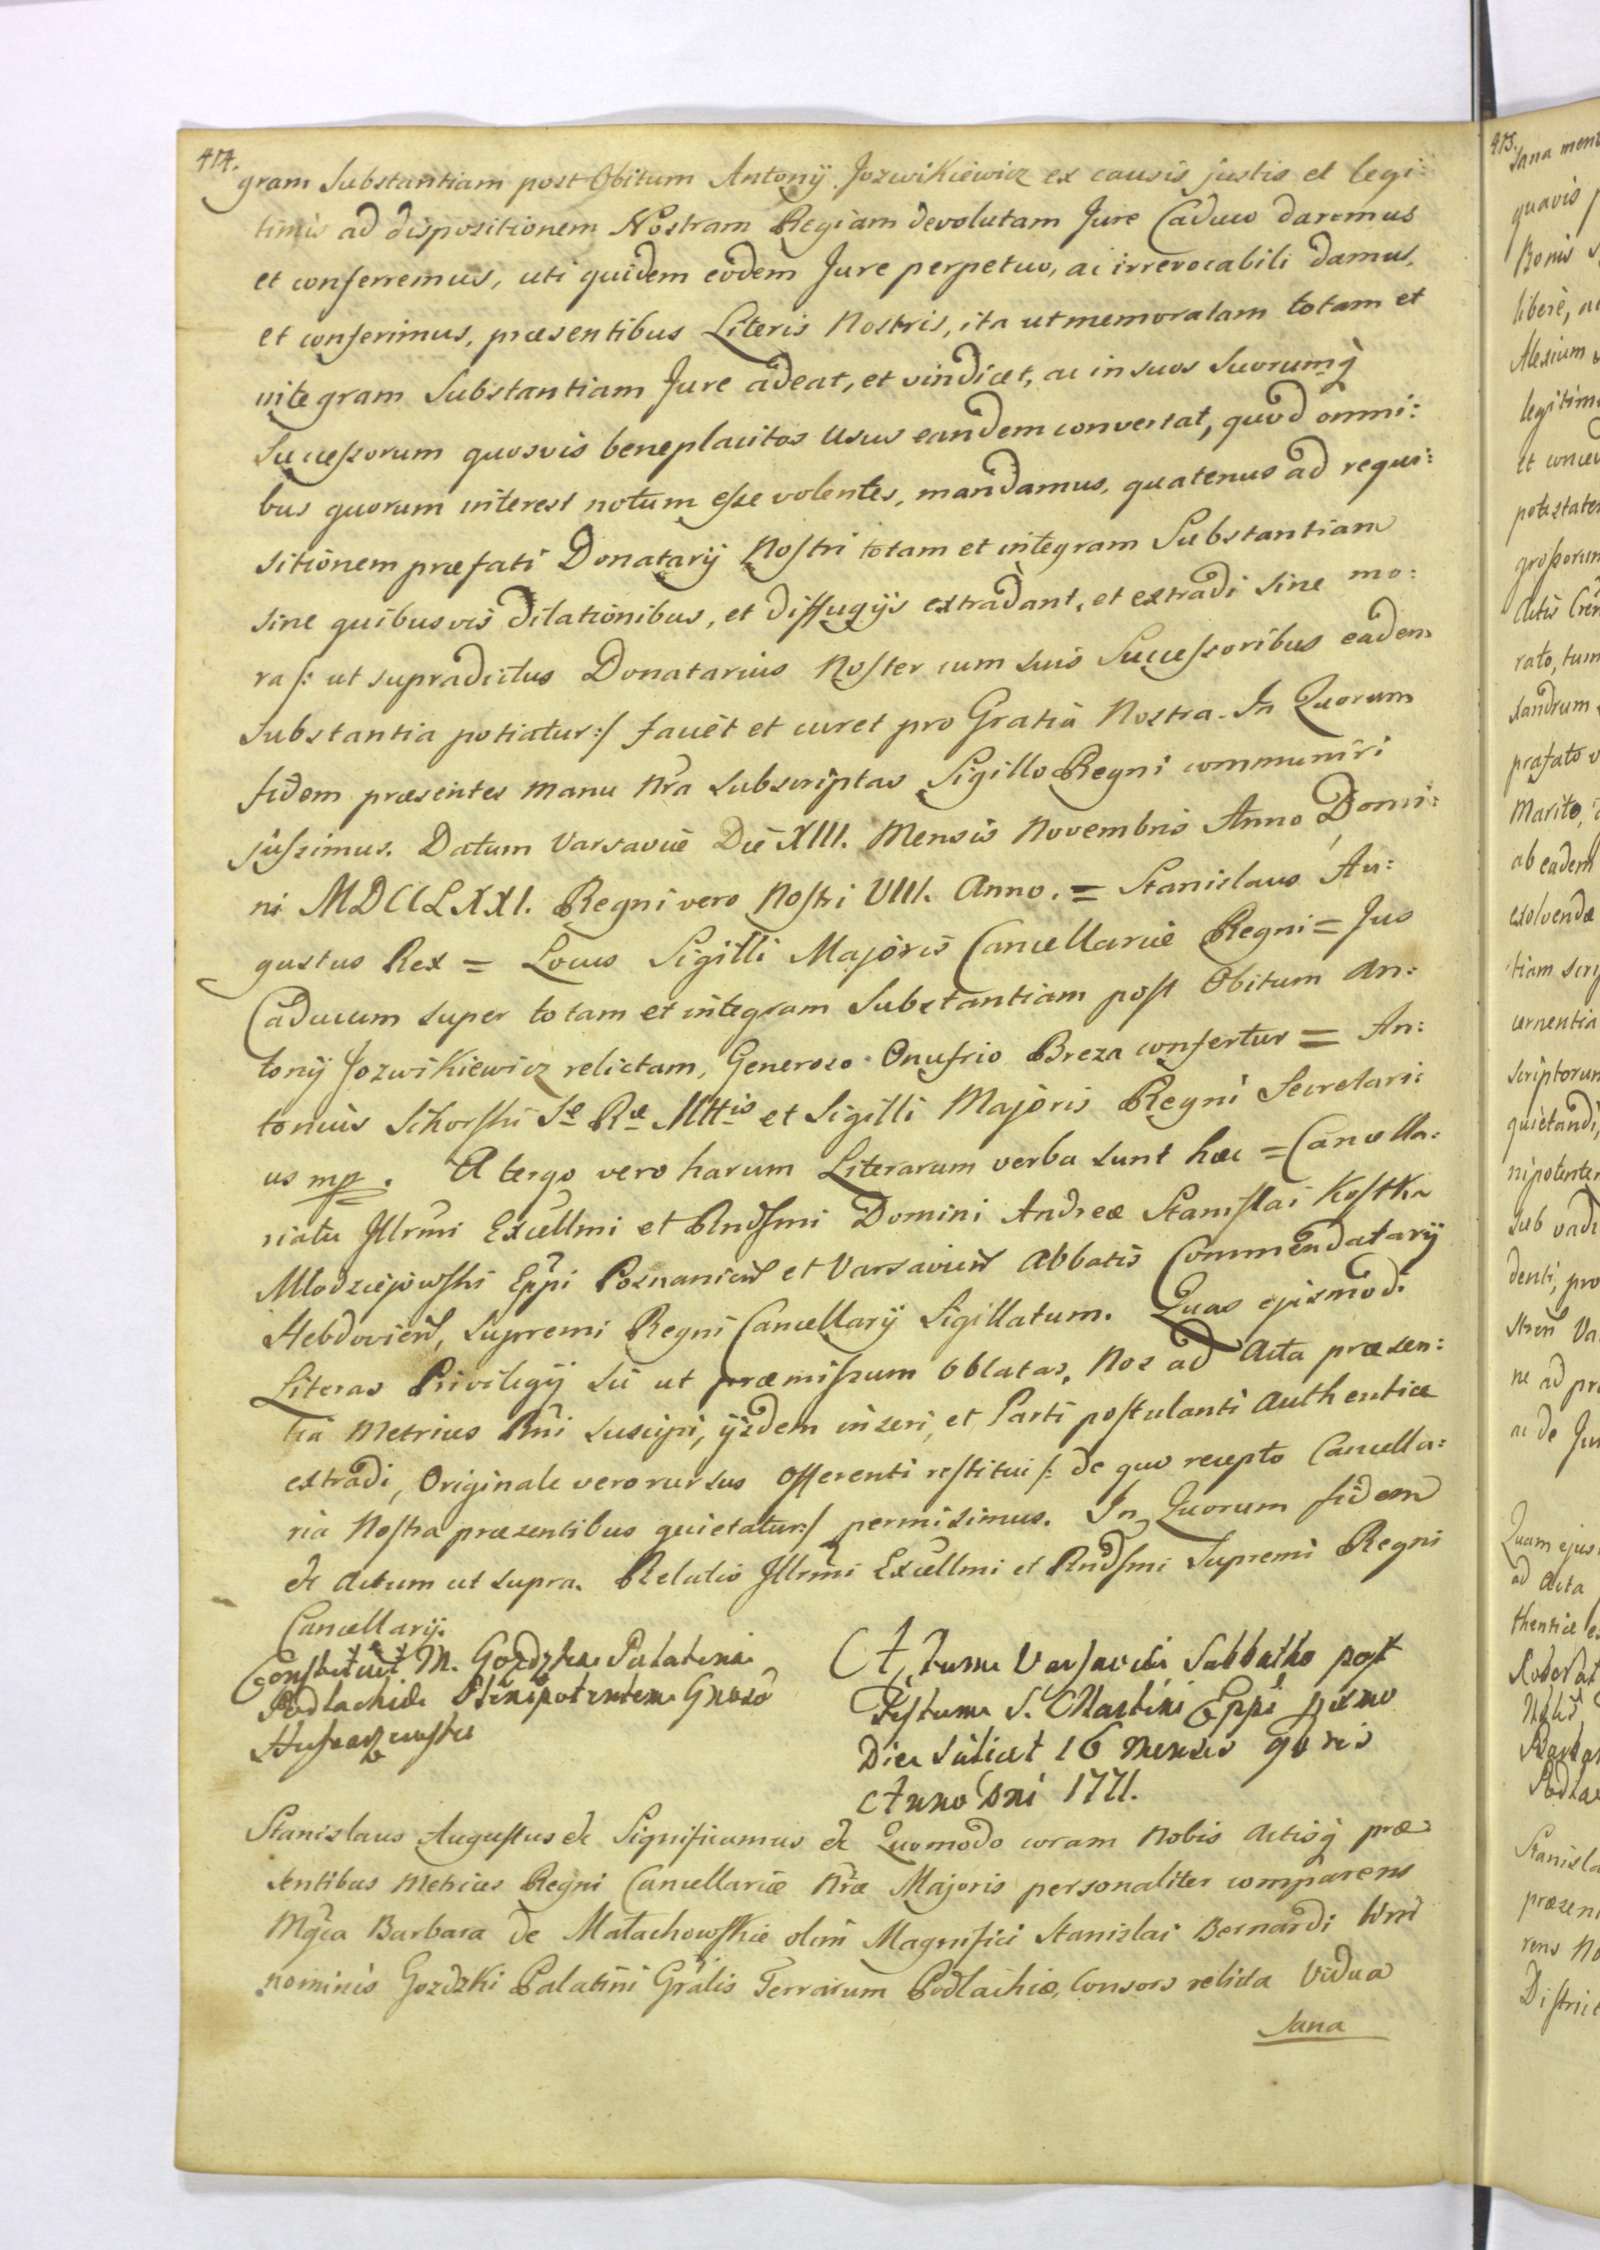 474.
gram Substantiam post Obitum Antonij Jozwikiewicz ex causis justis et legi:
timis ad dispositionem Nostram Regiam devolutam Jure Caduco daremus
et conferremus, uti quidem eodem Jure perpetuo, ac irrevocabili damus,
et conferimus, præsentibus Literis Nostris, ita ut memoratam totam et
integram Substantiam Jure adeat, et vindicet, ac in suos Suorumq̀
Successorum quosvis beneplacitos Usus eandem convertat, quod omni:
bus quorum interest notum esse volentes, mandamus, quatenus ad requi:
sitionem præfati Donatarij Nostri totam et integram Substantiam
sine quibusvis dilationibus, et diffugijs extradant, et extradi sine mo:
ra /: ut supradictus Donatarius Noster cum suis Successoribus eadem
substantia potiatur :/ faveat et curet pro Gratia Nostra. In Quorum
fidem præsentes manu Nrã subscriptas Sigillo Regni communiri
jussimus. Datum Varsaviæ Die XIII. Mensis Novembris Anno Domi:
ni MDCCLXXI. Regni vero Nostri VIII. Anno. = Stanislaus Au:
gustus Rex = Locus Sigilli Majoris Cancellariæ Regni = Jus
Caducum super totam et integram Substantiam post Obitum An:
tonij Jozwikiewicz relictam, Generoso Onufrio Breza confertur = An:
tonius Sikorski Sæ Ræ Mttis et Sigilli Majoris Regni Secretari:
us mp. A tergo vero harum Literarum verba sunt hæc = Cancella:
riatu Illrm̃i Excellm̃i et Rndsm̃i Domini Andreæ Stanislai Kostka
Młodziejowski Epp̃i Posnanien̄ et Varsavien̄ Abbatis Commendatarij
Hebdovien̄, Supremi Regni Cancellarij Sigillatum. Quas ejusmodi
Literas Privilegij sic ut præmissum oblatas, Nos ad Acta præsen:
tia Metrices Rn̄i suscipi, ijsdem inseri, et Parti postulanti authentice
extradi, Originale vero rursus Offerenti restitui /: de quo recepto Cancella:
ria Nostra præsentibus quietatur :/ permisimus. In Quorum fidem
&c Actum ut supra. Relatio Illrm̃i Excellm̃i et Rndsm̃i Supremi Regni
Cancellarij.
Constituit M. Gozdzka Palatina
Podlachiæ Plenipotentem Gnosõ
Actum Varsaviæ Sabbatho post
Festum S. Martini Epp̃i proximo
Die scilicet 16 mensis 9bris
Anno Dn̄i 1771.
Stanislaus Augustus &c Significamus &c Quomodo coram Nobis Actisq̀ præ
sentibus Metrices Regni Cancellariæ Nrã Majoris personaliter comparens
Mgc̃a Barbara de Małachowskie olim Magnifici Stanislai Bernardi bini
nominis Gozdzki Palatini Gralis Terrarum Podlachiæ, Consors relicta Vidua
Sana